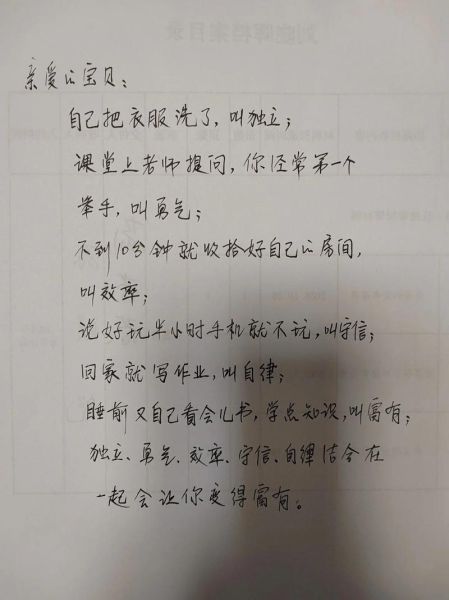 亲爱的宝贝：
自己把衣服洗了，叫独立；
课堂上老师提问，你经常第一个
举手，叫勇气；
不到10分钟就收拾好自己的房间，
叫效率；
说好玩半小时手机就不玩，叫守信；
回家就写作业，叫自律；
睡前又自己看会儿书，学点知识，叫富有；
独立、勇气、效率、守信、自律结合在
一起会让你变得富有。